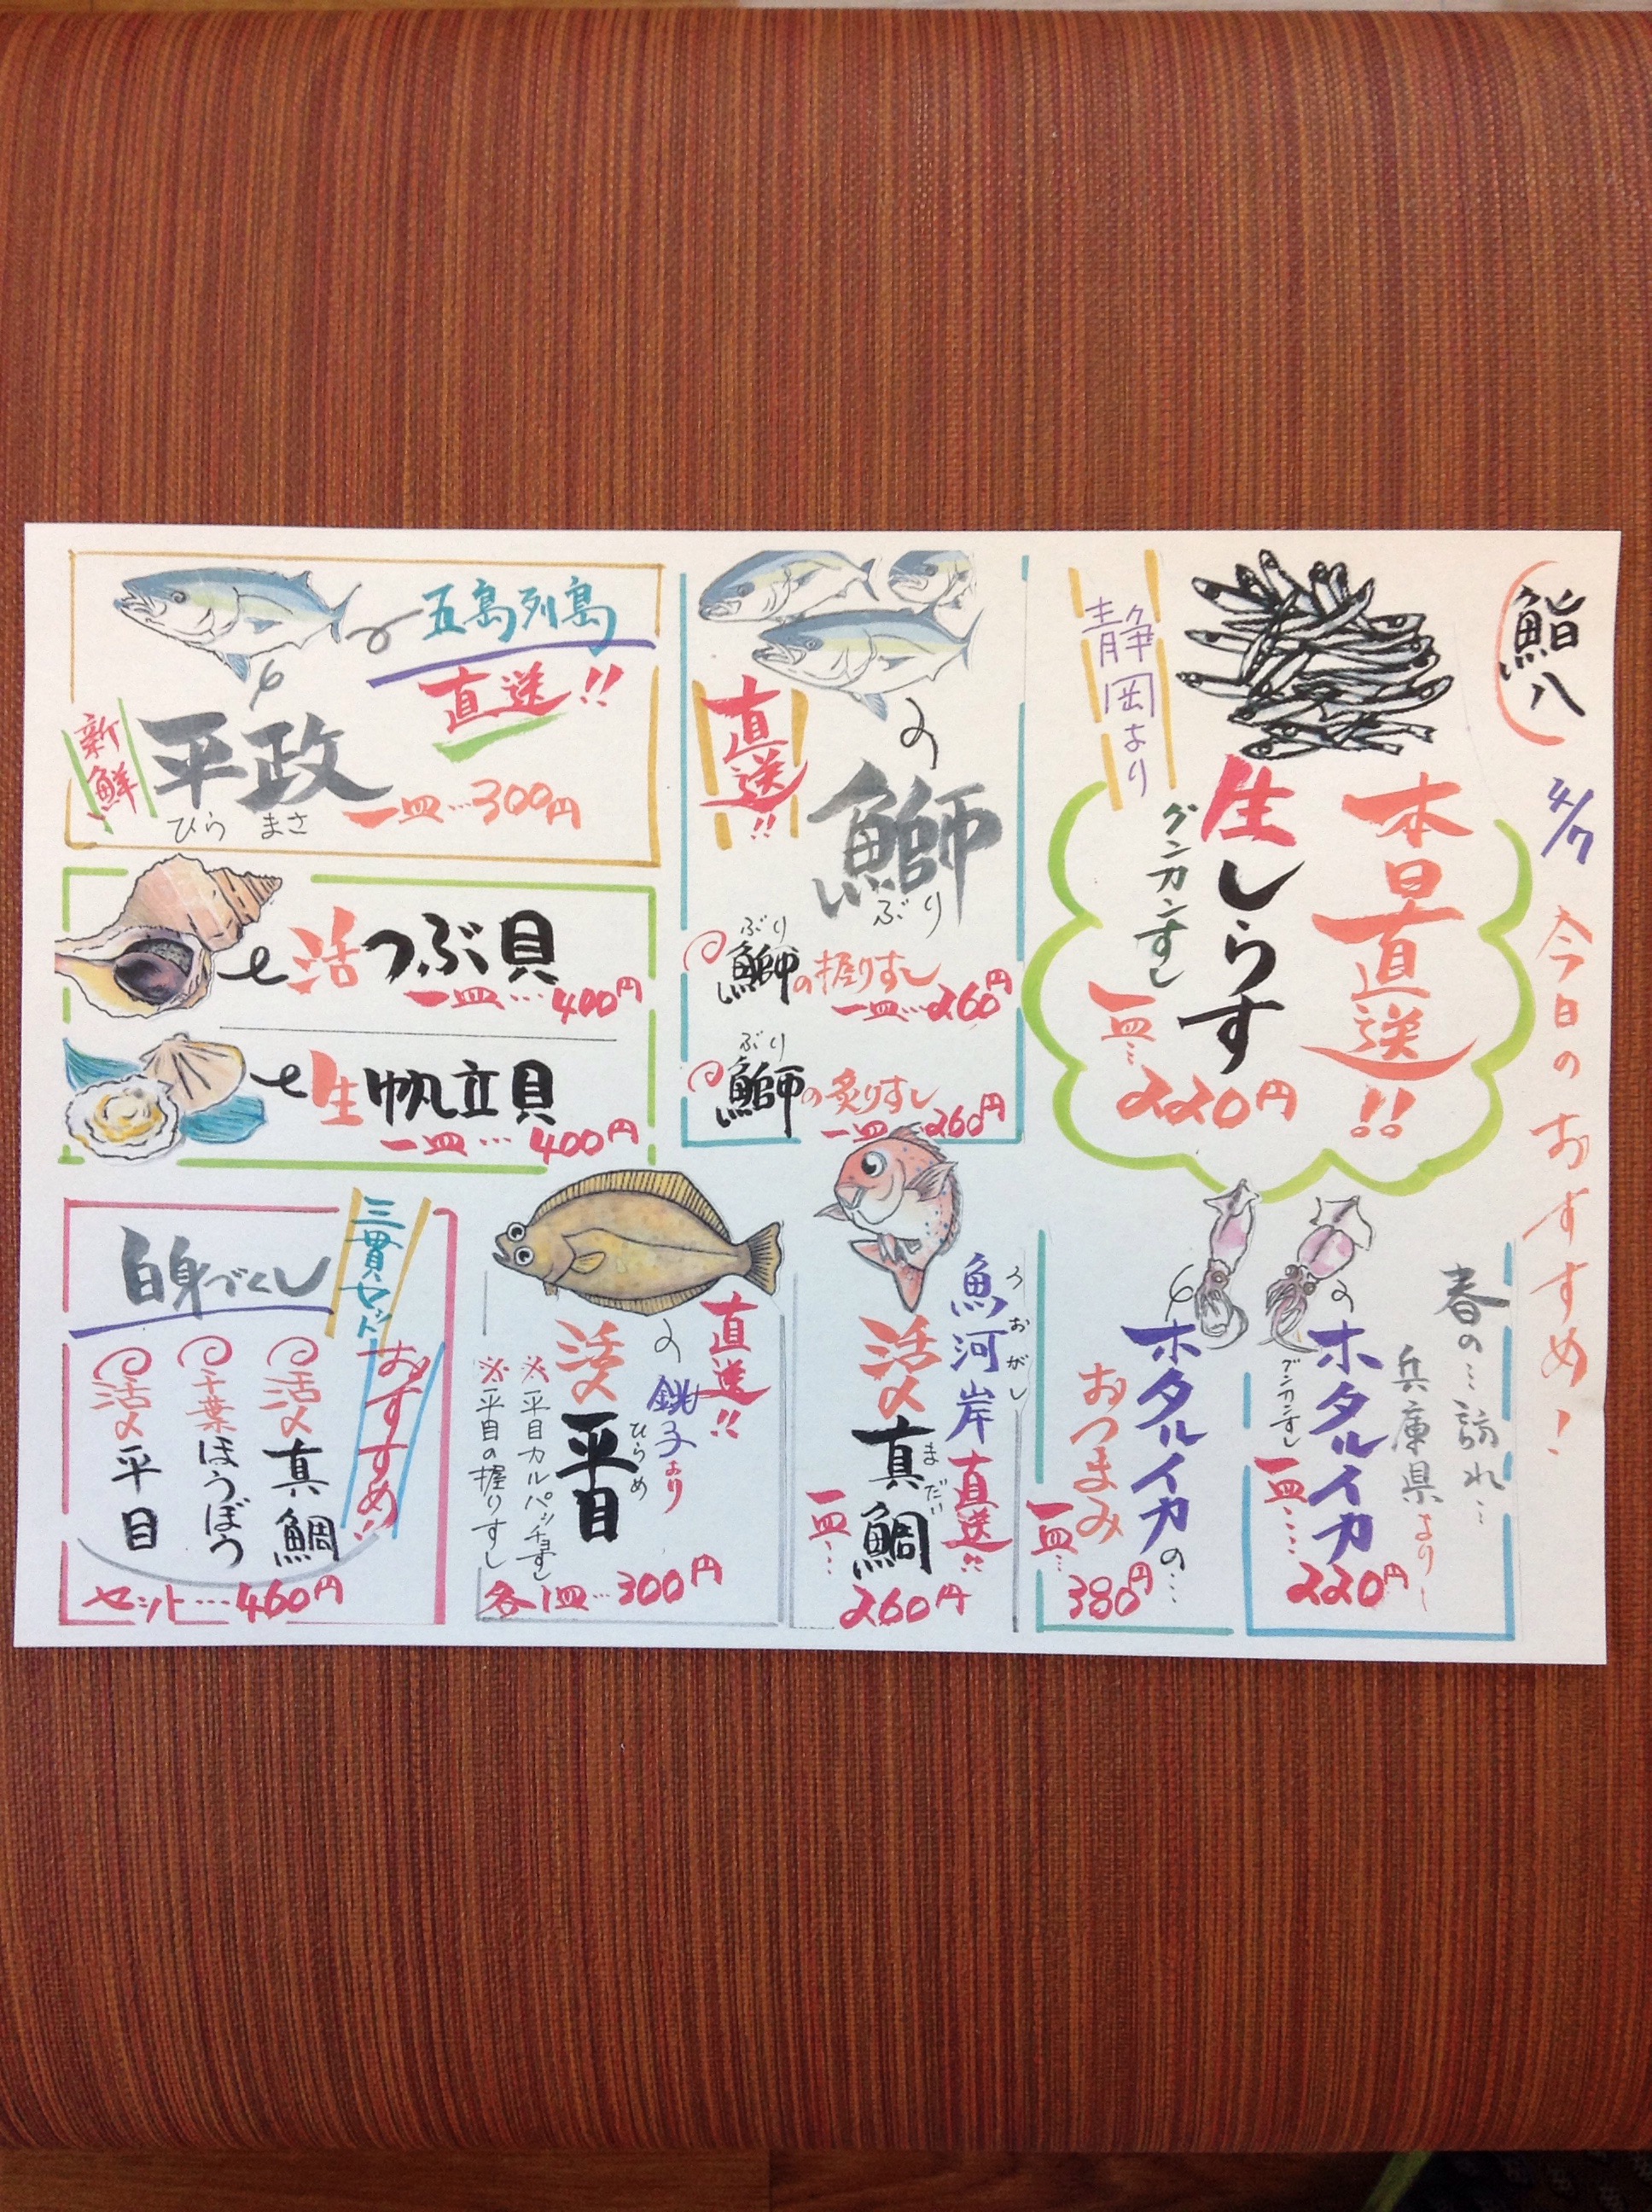 鮨八
4/7 今日のおすすめ!
本日直送!!
生しらす
グンカンすし
一皿…220円
静岡より
春の…訪れ…
兵庫県より
ホタルイカ
グンカンすし
一皿…220円
ホタルイカの…
おつまみ
一皿…380円
の
直送!!
鰤
ぶり
ぶり
鰤の握りすし
一皿…260円
ぶり
鰤の炙りすし
一皿…260円
五島列島
直送!!
新鮮
平政
ひらまさ
一皿…300円
活つぶ貝
一皿…400円
生帆立貝
一皿…400円
うおがし
魚河岸直送!!
活〆真鯛
まだい
一皿…260円
直送!!
の
銚子より
活〆平目
ひらめ
※平目カルパッチョすし
※平目の握りすし
各1皿…300円
三貫セット
おすすめ!!
白身づくし
活〆真鯛
千葉ほうぼう
活〆平目
セット…460円